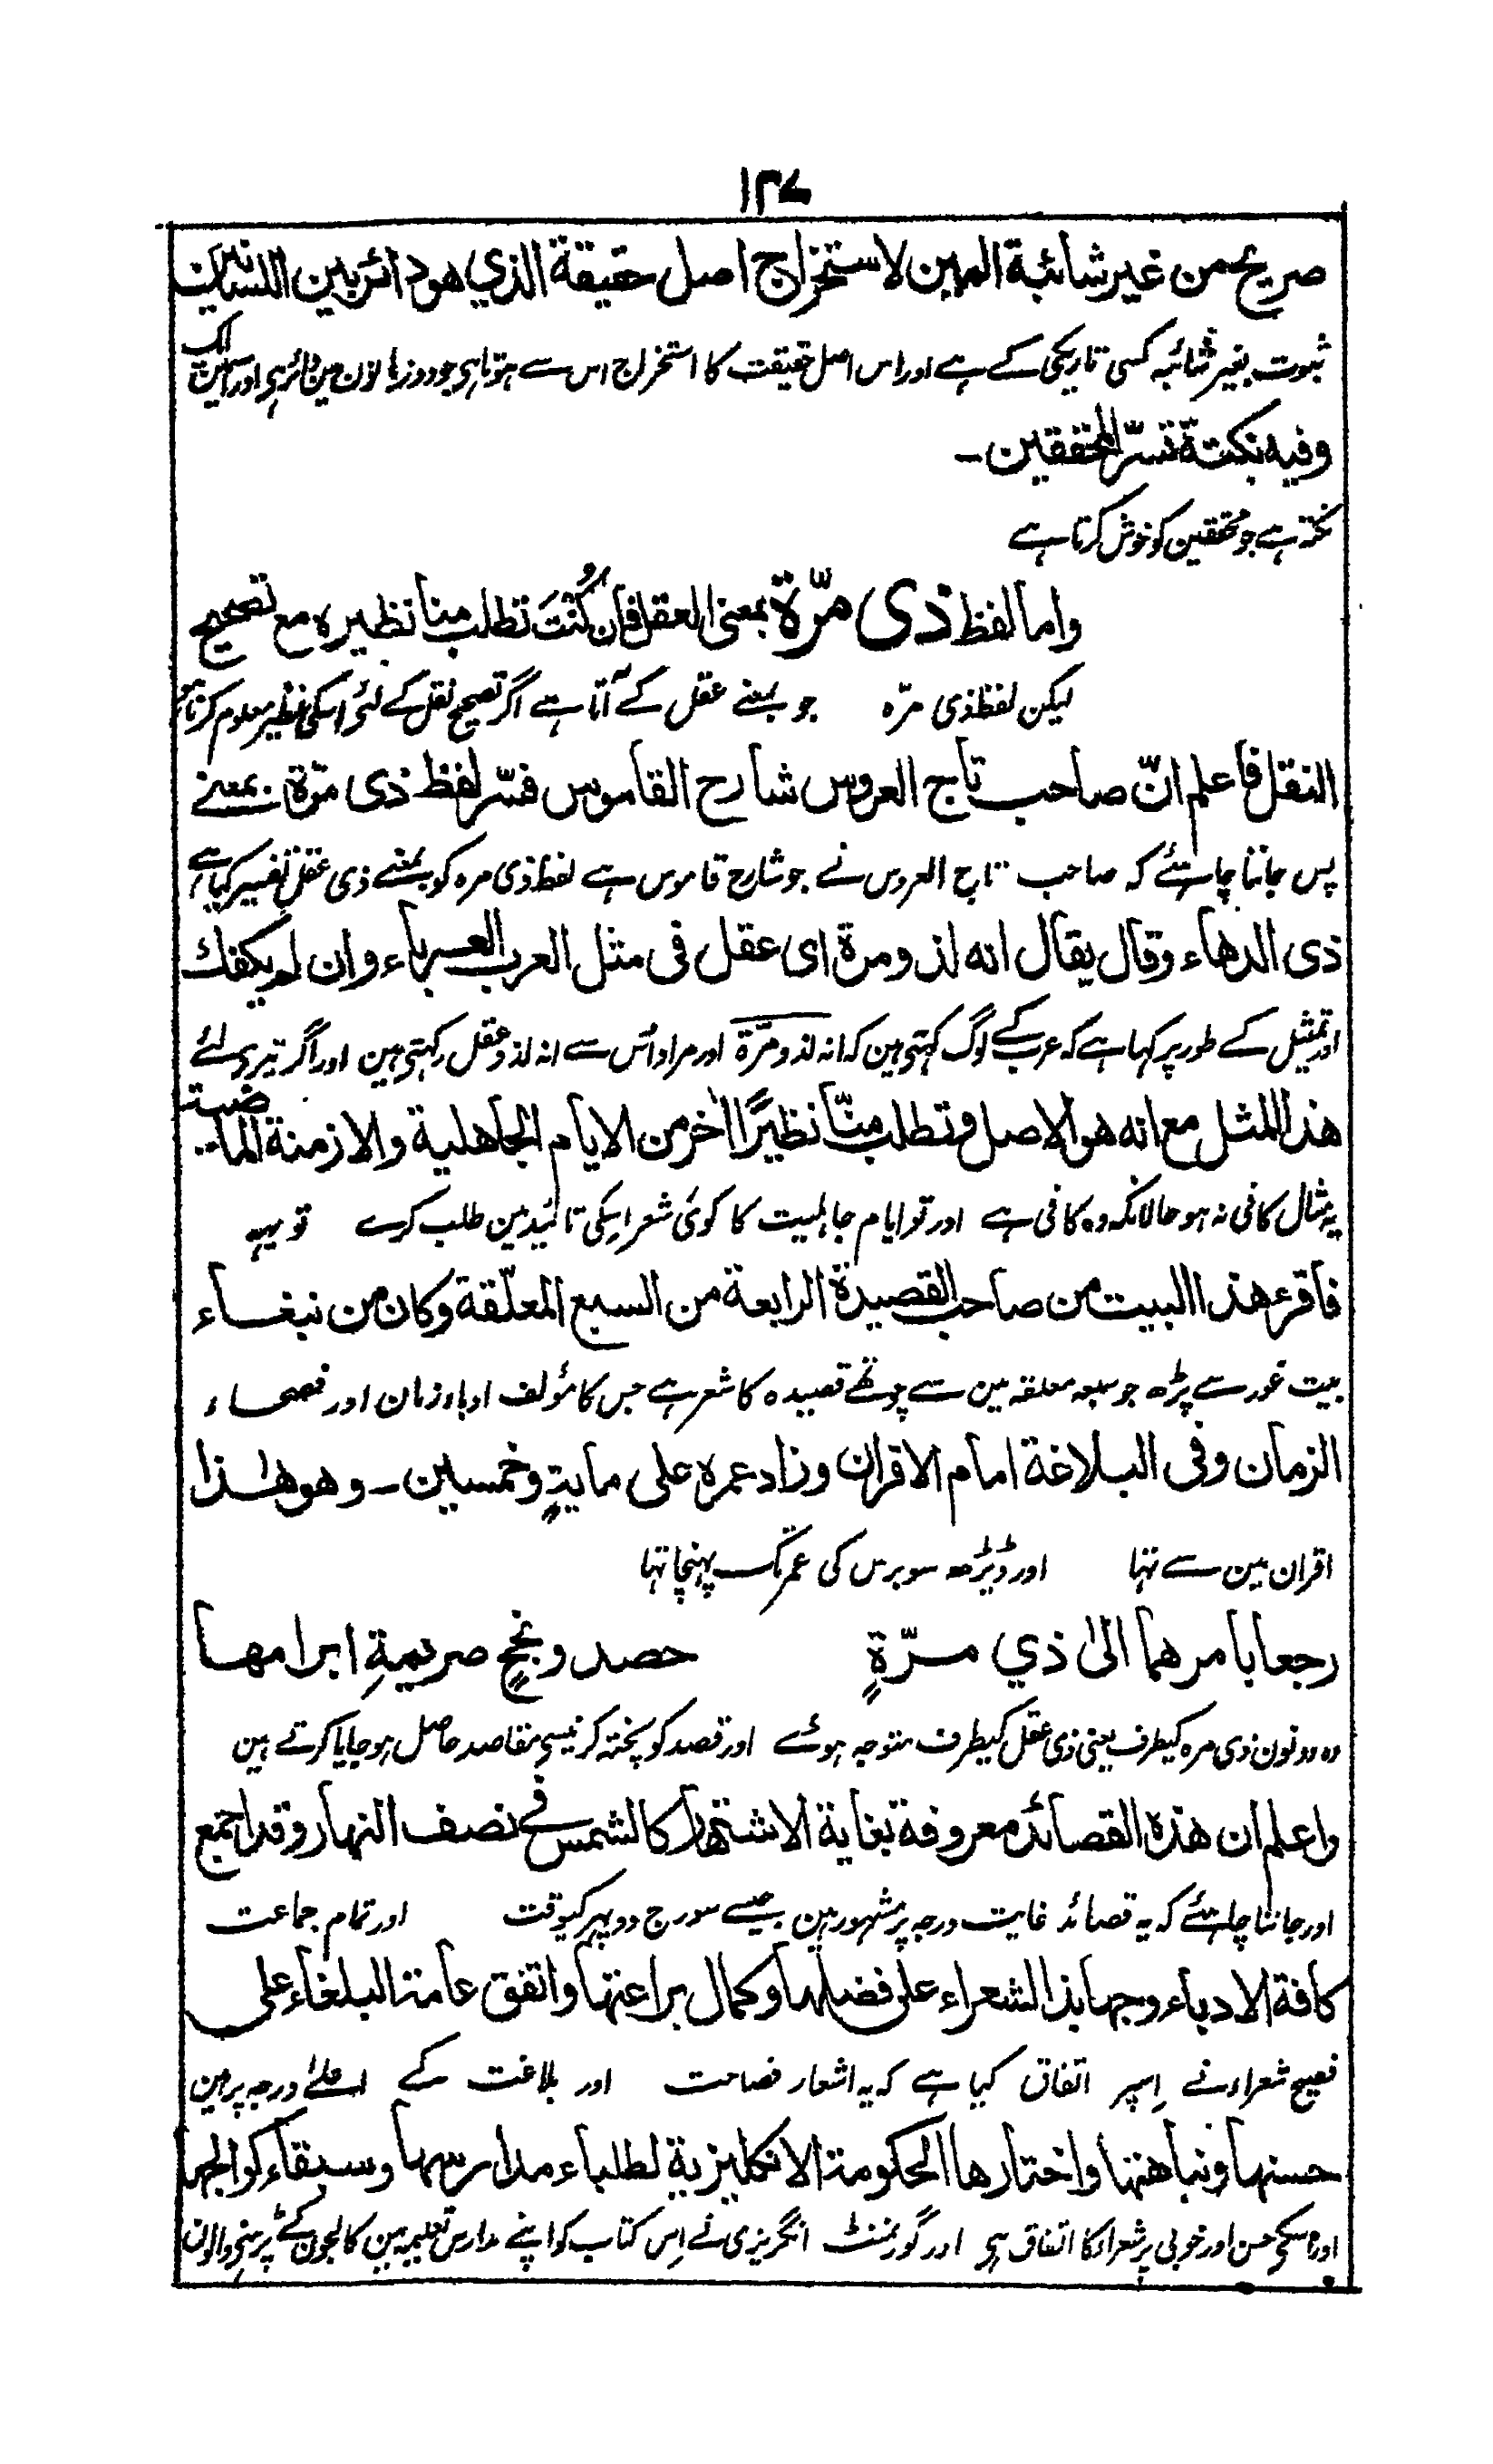 ۱۳۷
صريح من غير شائبة المين لاستخراج اصل حقيقة الذي هو دائر بين اللسانين
ثبوت بغیر شائبہ کسی تاریکی کے ہے اور اس اصل حقیقت کا استخراج اس سے ہوتا ہی جو دو زبانوں مین دائر ہی اور اسمین ایک
وفيه نكتة تسرّ المحققين ـ
نکتہ ہے جو محققین کو خوش کرتا ہے
واما لفظ ذی مرّة بمعنى العقل فان كُنْتَ تطلب منا نظيره مع تصحيح
لیکن لفظ ذی مرّہ جو بمعنے عقل کے آتا ہے اگر تصحیح نقل کے لئے اسکی نظیر معلوم کرنا ہے
النقل فاعلم انّ صاحب تاج العروس شارح القاموس فسّر لفظ ذی مرّة بمعنے
پس جاننا چاہئے کہ صاحب تاج العروس نے جو شارح قاموس ہے لفظ ذی مرہ کو بمعنے ذی عقل تفسیر کیا ہے
ذی الدهاء وقال يقال انه لذو مرة ای عقل فی مثل العرب العرباء وان لم يكفك
اور تمثیل کے طور پر کہا ہے کہ عرب کے لوگ کہتی ہین کہ انہ لذو مرّة اور مراد اُس سے انہ لذو عقل رکہتی ہین اور اگر تیری لئے
هذا المثل مع انه هو الاصل وتطلب منّا نظيرًا اٰخر من الايام الجاهلية والازمنة الماضية
یہ مثال کافی نہ ہو حالانکہ وہ کافی ہے اور تو ایام جاہلیت کا کوئی شعر اسکی تائید مین طلب کرے تو یہہ
فاقرء هذا البيت من صاحب القصيدة الرابعة من السبع المعلّقة وكان من نبغاء
بیت غور سے پڑھ جو سبعہ معلقہ مین سے چوتھے قصیدہ کا شعر ہے جس کا مؤلف ادباء زمان اور فصحاء
الزمان وفی البلاغة امام الاقران وزاد عمره على مايةٍ وخمسين ـ وهو هٰذا
اقران مین سے تہا اور ڈیڑھ سو برس کی عمر تک پہنچا تہا
رجعا بامرهما الىٰ ذي مرّةٍ حصد ونجحٍ صريمةِ ابرامها
وہ دونون ذی مرہ کیطرف یعنی ذی عقل کیطرف متوجہ ہوئے اور قصد کو پختہ کرنیسی مقاصد حاصل ہو جایا کرتے ہین
واعلم ان هذه القصائد معروفة بغاية الاشتهار كالشمس فی نصف النهار وقد اجمع
اور جاننا چاہئے کہ یہ قصائد غایت درجہ پر مشہور ہین جیسے سورج دوپہر کیوقت اور تمام جماعت
كافة الادباء وجهابذ الشعراء على فضلها وكمال براعتها واتفق عامة البلغاء على
فصیح شعراء نے اِسپر اتفاق کیا ہے کہ یہ اشعار فصاحت اور بلاغت کے اعلیٰ درجہ پر ہین
حسنها ونباهتها واختارها الحكومة الانكليزية لطلباء مدارسها وسبقاء كوالجها
اور اسکی حسن اور خوبی پر شعراء کا اتفاق ہی اور گورنمنٹ انگریزی نے اِس کتاب کو اپنے مدارس تعلیمیہ مین کالجون کے پڑہنی والون